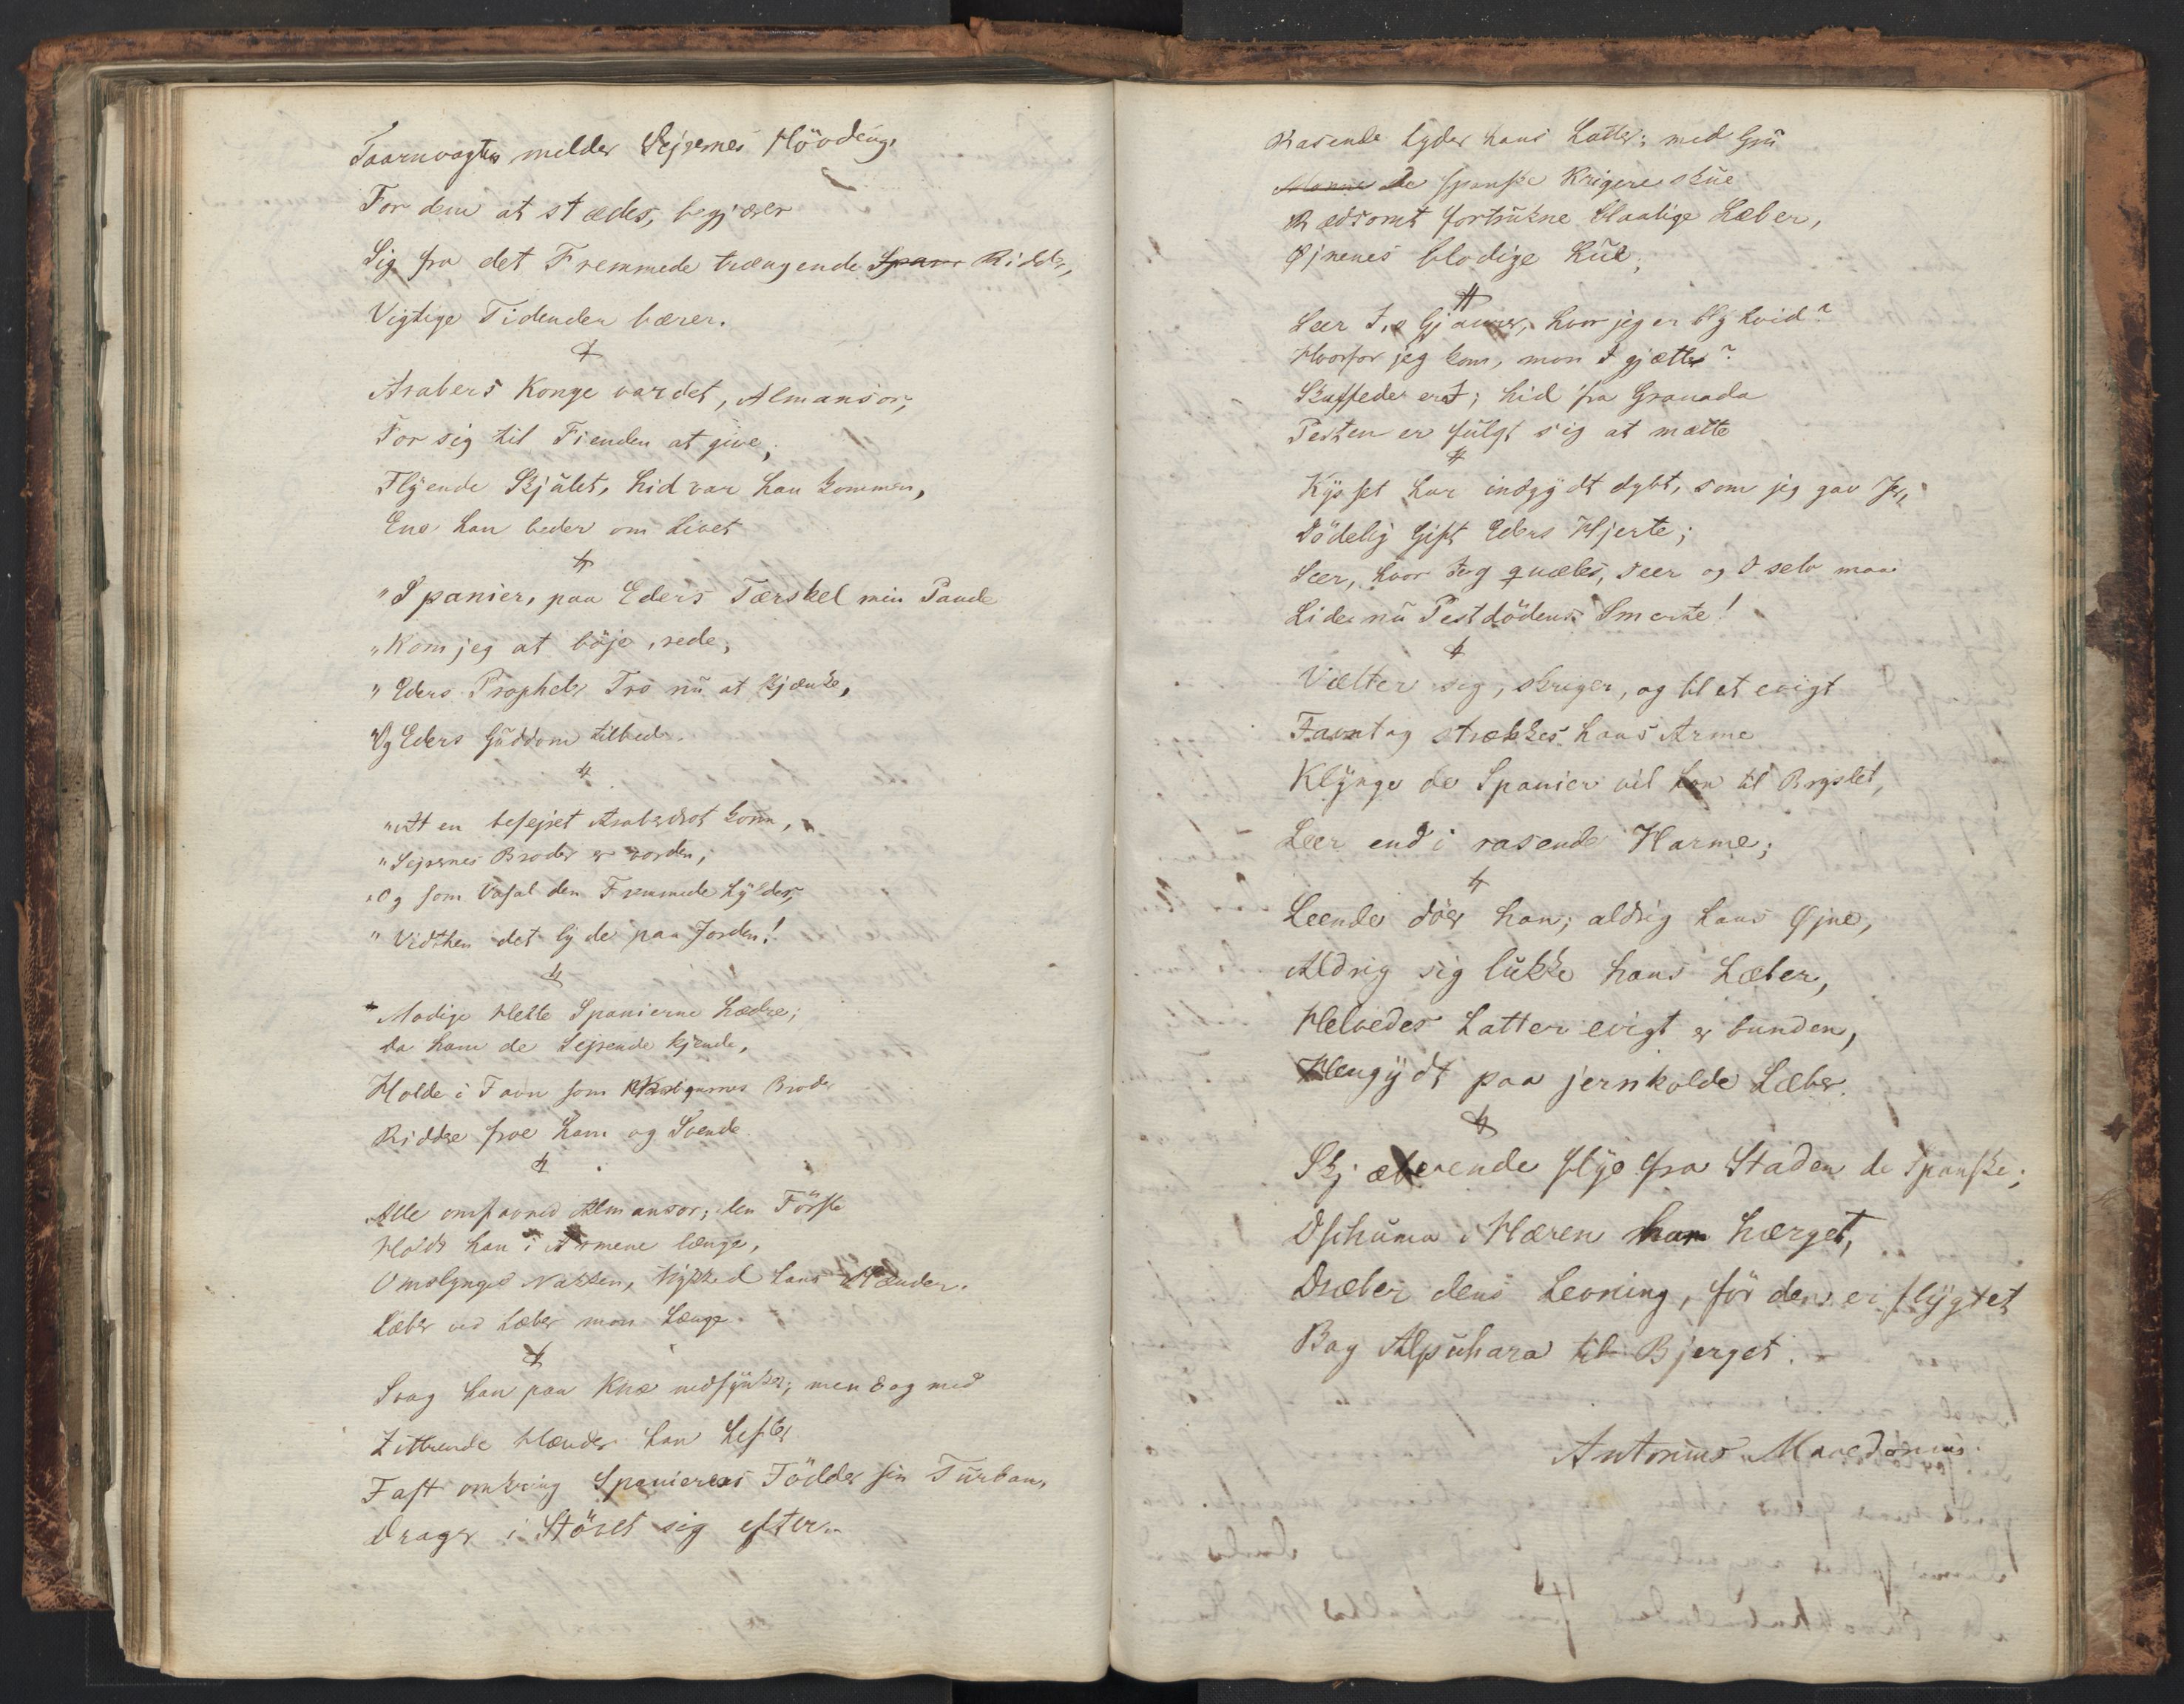 Taarnvagten melder Sejrernes Hövding,
For dem at stædes, begjærer
Sig fra det Fremmede trængende Spani Ridder,
Vigtige Tidender bærer.
Arabers Konge var det, Almansor,
For sig til Fienden at give,
Flyende Skjulet, hid var han kommen,
Ene han beder om Livet
"Spanier, paa Eders Tærskel min Pande
"Kom jeg at böje, rede,
"Eders Prophets Tro nu at skjænke,
"Og Eders Guddom tilbede.
"At en besejret Araberdrot kom,
"Sejrernes Broder er vorden,
"Og som Vasal den Fremmede hylder,
"Vidthen det lyde paa Jorden!
Modige Helte Spanierne hædre;
Da ham de Sejrende kjende,
Holde i Favn som Krigernes Broder
Riddere froe ham og Svende.
Alle omfavned Almansor; den Förste
Holdt han i Armene længe,
Omslynged Nakken, trykked hans Hænder.
Læber ved Læber mon hænge.
Svag han paa Knæ nedsynker; men dog med
Zittrende Hænder han hefter
Fast omkring Spanierens Födder sin Turban,
Drager i Stövet sig efter.
Rasende lyder hans Latter; med Gru
Monne de spanske Krigere skue
Rædsomt fortrukne blaalige Læber,
Øjnenes blodige Lue,
Seer I, o Gjaurer, hvor jeg er blyhvid?
Hvorfor jeg kom, mon I gjætte?
Skuffede er I; hid fra Granada
Pesten er fulgt sig at mætte
Kysset har indgydt dybt, som jeg gav Jer,
Dödelig Gift Eders Hjerte;
Seer, hvor jeg quæles, seer og I selv maa
Lide nu Pestdödens Smerte!
Vælter sig, skriger, og til et evigt
Favntag strækkes hans Arme
Klynge de Spanier vil han til Brystet,
Leer end i rasende Harme;
Leende döer han; aldrig hans Øjne,
Aldrig sig lukke hans Læber,
Helvedes Latter evigt er bunden,
Hengydt paa jernkolde Læber.
Skjælvende flye fra Staden de Spanske;
Dschuma i Hæren har hærget,
Dræber dens Levning, för den er flygtet
Bag Alpuhara til Bjerget.
Antonius Macedonius.